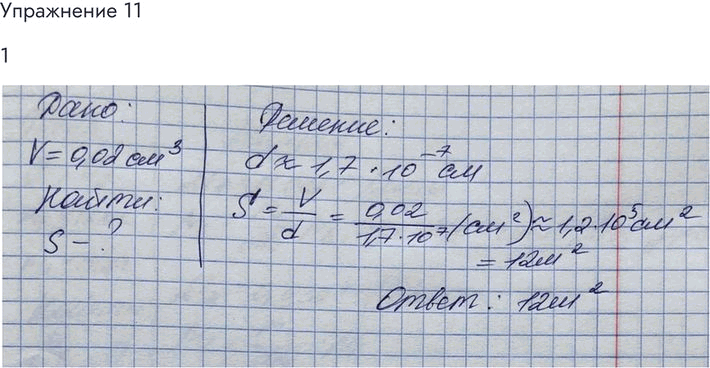 Упражнение 11
1
Дано:
V = 0,02 см³
Найти:
S - ?
Решение:
d ≈ 1,7 · 10⁻⁷ см
S = V/d = 0,02/1,7·10⁻⁷ (см²) ≈ 1,2·10⁵ см²
= 12 м²
Ответ: 12 м²